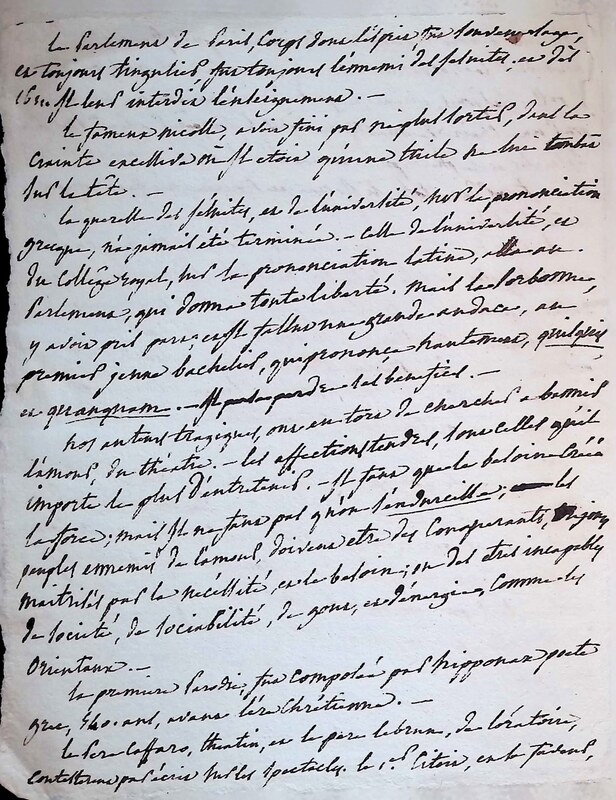 le Parlement de Paris, Corps dont l'esprit fut souvent sage,
et toujours singulier fut toujours l'ennemi des jesuites, et dès
il leur interdit l'enseignement. —
le fameux nicolle, avoit fini par ne plus sortir, dans la
crainte excessive où il etoit qu'une thile ne lui tombât
sur la tête. —
la querelle des jésuites, et de l'université, sur la prononciation
grecque, n'a jamais été terminée. — celle de l'université, et
du Collège royal, sur la prononciation latine, alla au
Parlement, qui donna toute liberté. mais la Sorbonne,
y avoit pris part, et il fallut une grande audace, au
premier jeune bachelier, qui prononça hautement, quisquis
et quanquam. — Il perdre ses benefices. —
nos auteurs tragiques, ont eu tort de chercher a bannir
l'amour, du théatre. — les affections tendres, sont celles qu'il
importe le plus d'entretenir. — Il faut que le besoin créée
la force; mais il ne faut pas qu'on s'endurcisse; — les
peuples ennemis de l'amour, doivent etre des Conquerants,
maitrisés par la nécéssité, et le besoin; ou des etres incapables
de société, de sociabilité, de gout, et d'énergie, Comme les
Orientaux. —
la premiere Parodie, fut composée par hipponax poete
grec, 540. ans, avant l'ére Chrétienne. —
le Pere Caffaro, théatin, et le pere lebrun, de l'oratoire,
contesterent par écrit sur les spectacles. le 1.er Citoit, en sa faveur,